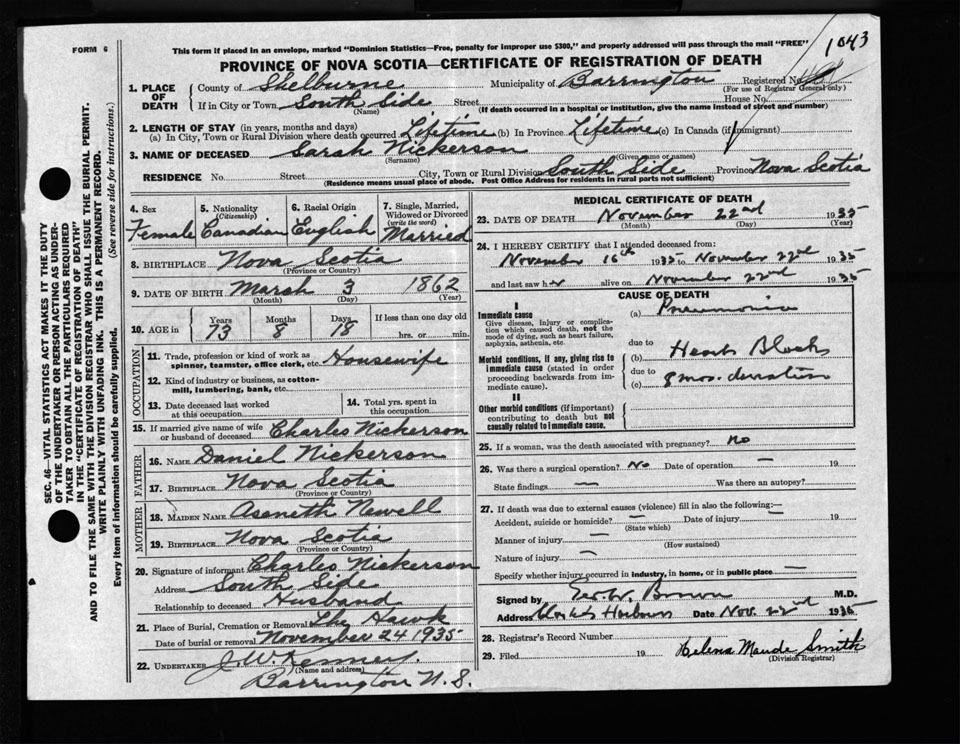 1043
FORM 6
This form if placed in an envelope, marked "Dominion Statistics—Free, penalty for improper use $300," and properly addressed will pass through the mail "FREE"
PROVINCE OF NOVA SCOTIA—CERTIFICATE OF REGISTRATION OF DEATH
SEC. 46—VITAL STATISTICS ACT MAKES IT THE DUTY
OF THE UNDERTAKER OR PERSON ACTING AS UNDER-
TAKER TO OBTAIN ALL THE PARTICULARS REQUIRED
IN THE "CERTIFICATE OF REGISTRATION OF DEATH"
AND TO FILE THE SAME WITH THE DIVISION REGISTRAR WHO SHALL ISSUE THE BURIAL PERMIT.
WRITE PLAINLY WITH UNFADING INK. THIS IS A PERMANENT RECORD.
Every item of information should be carefully supplied.
(See reverse side for instructions.)
1. PLACE OF DEATH
County of Shelburne Municipality of Barrington Registered No.
(For use of Registrar General only)
If in City or Town South Side Street House No.
(Name) (If death occurred in a hospital or institution, give the name instead of street and number)
2. LENGTH OF STAY (in years, months and days)
(a) In City, Town or Rural Division where death occurred Lifetime (b) In Province Lifetime (c) In Canada (if immigrant)
3. NAME OF DECEASED Sarah Nickerson
(Surname) (Given name or names)
RESIDENCE No. Street City, Town or Rural Division South Side Province Nova Scotia
(Residence means usual place of abode. Post Office Address for residents in rural parts not sufficient)
4. Sex Female
5. Nationality (Citizenship) Canadian
6. Racial Origin English
7. Single, Married, Widowed or Divorced (write the word) Married
8. BIRTHPLACE Nova Scotia
(Province or Country)
9. DATE OF BIRTH March 3 1862
(Month) (Day) (Year)
10. AGE in Years 73 Months 8 Days 18 If less than one day old hrs. or min.
OCCUPATION
11. Trade, profession or kind of work as spinner, teamster, office clerk, etc. Housewife
12. Kind of industry or business, as cotton-mill, lumbering, bank, etc.
13. Date deceased last worked at this occupation
14. Total yrs. spent in this occupation
15. If married give name of wife or husband of deceased Charles Nickerson
FATHER
16. NAME Daniel Nickerson
17. BIRTHPLACE Nova Scotia
(Province or Country)
MOTHER
18. MAIDEN NAME Aseneth Newell
19. BIRTHPLACE Nova Scotia
(Province or Country)
20. Signature of informant Charles Nickerson
Address South Side
Relationship to deceased Husband
21. Place of Burial, Cremation or Removal The Hawk
Date of burial or removal November 24 1935
22. UNDERTAKER J. W. Kenney,
(Name and address)
Barrington N. S.
MEDICAL CERTIFICATE OF DEATH
23. DATE OF DEATH November 22nd 1935
(Month) (Day) (Year)
24. I HEREBY CERTIFY that I attended deceased from:
November 16th 1935 to November 22nd 1935
and last saw her alive on November 22nd 1935
CAUSE OF DEATH
I
Immediate cause
Give disease, injury or complication which caused death, not the mode of dying, such as heart failure, asphyxia, asthenia, etc.
(a) Pneumonia
due to
Morbid conditions, if any, giving rise to immediate cause (stated in order proceeding backwards from immediate cause).
(b) Heart Block
due to
(c) 8 mos. duration
II
Other morbid conditions (if important) contributing to death but not causally related to immediate cause.
25. If a woman, was the death associated with pregnancy? no
26. Was there a surgical operation? No Date of operation — 19
State findings — Was there an autopsy?
27. If death was due to external causes (violence) fill in also the following:—
Accident, suicide or homicide? — Date of injury — 19
(State which)
Manner of injury —
(How sustained)
Nature of injury —
Specify whether injury occurred in industry, in home, or in public place —
Signed by Geo. W. Brown M.D.
Address Clark's Harbour Date Nov. 22nd 1935
28. Registrar's Record Number
29. Filed 19 Helena Maude Smith
(Division Registrar)